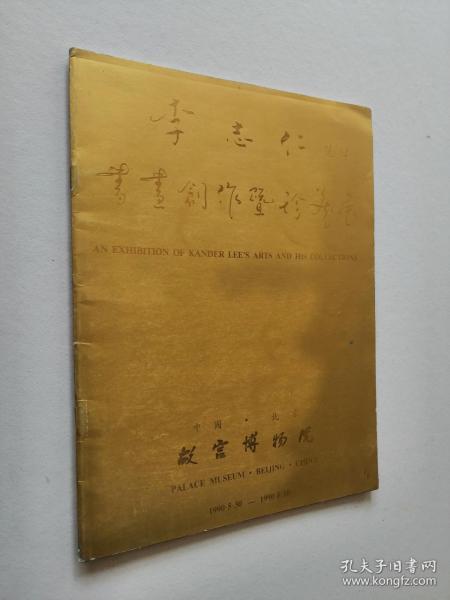 李志仁先生
書畫創作暨珍藏展
AN EXHIBITION OF KANDER LEE'S ARTS AND HIS COLLECTIONS
中國·北京
故宫博物院
PALACE MUSEUM · BEIJING · CHINA
1990·5·30 —
孔夫子旧书网
www.kongfz.com